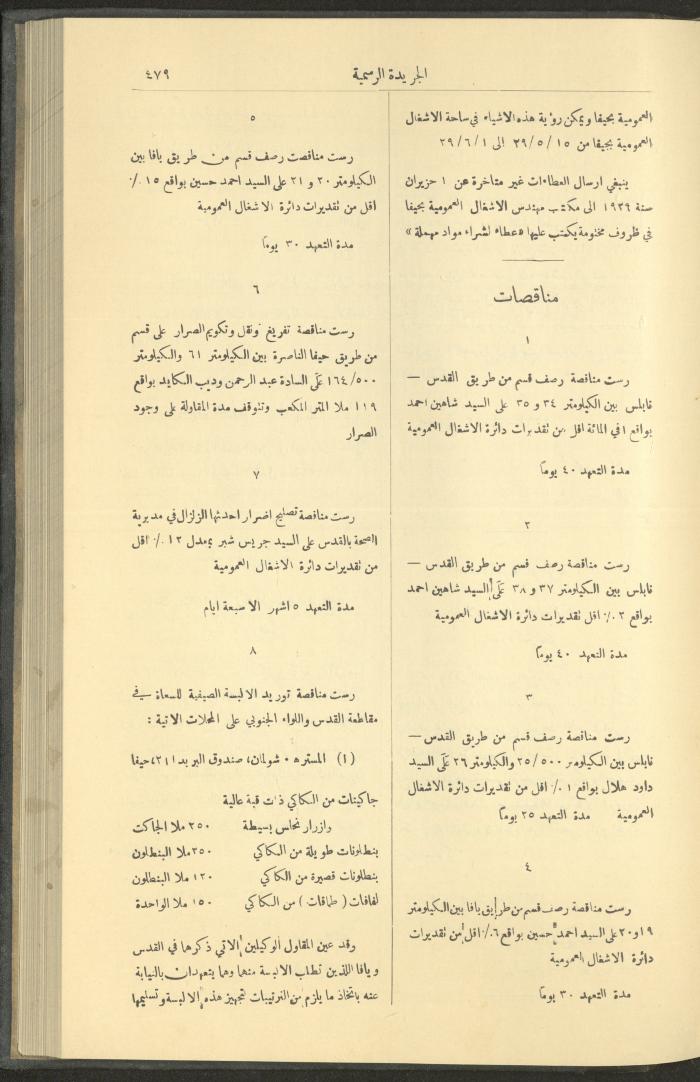 الجريدة الرسمية
٤٧٩
العمومية بحيفا ويمكن رؤية هذه الاشياء في ساحة الاشغال
العمومية بحيفا من ٢٩/٥/١٥ الى ٢٩/٦/١
ينبغي ارسال العطاءات غير متاخرة عن ١ حزيران
سنة ١٩٢٩ الى مكتب مهندس الاشغال العمومية بحيفا
في ظروف مختومة يكتب عليها «عطاء لشراء مواد مهملة»
مناقصات
١
رست مناقصة رصف قسم من طريق القدس —
نابلس بين الكيلومتر ٣٤ و ٣٥ على السيد شاهين احمد
بواقع ١ في المائة اقل من تقديرات دائرة الاشغال العمومية
مدة التعهد ٤٠ يومًا
٢
رست مناقصة رصف قسم من طريق القدس —
نابلس بين الكيلومتر ٣٧ و ٣٨ على السيد شاهين احمد
بواقع ٢٠٪ اقل تقديرات دائرة الاشغال العمومية
مدة التعهد ٤٠ يومًا
٣
رست مناقصة رصف قسم من طريق القدس —
نابلس بين الكيلومتر ٢٥/٥٠٠ والكيلومتر ٢٦ على السيد
داود هلال بواقع ١٪ اقل من تقديرات دائرة الاشغال
العمومية مدة التعهد ٢٥ يومًا
٤
رست مناقصة رصف قسم من طريق يافا بين الكيلومتر
١٩ و ٢٠ على السيد احمد حسين بواقع ٦٪ اقل من تقديرات
دائرة الاشغال العمومية
مدة التعهد ٣٠ يومًا
٥
رست مناقصت رصف قسم من طريق يافا بين
الكيلومتر ٢٠ و ٢١ على السيد احمد حسين بواقع ١٥٪
اقل من تقديرات دائرة الاشغال العمومية
مدة التعهد ٣٠ يومًا
٦
رست مناقصة تفريغ ونقل وتكويم الصرار على قسم
من طريق حيفا الناصرة بين الكيلومتر ٦١ والكيلومتر
١٦٤/٥٠٠ على السادة عبد الرحمن وديب الكايد بواقع
١١٩ ملا المتر المكعب وتتوقف مدة المقاولة على وجود
الصرار
٧
رست مناقصة تصليح اضرار احدثها الزلزال في مديرية
الصحة بالقدس على السيد جريس شبر بمعدل ١٢٪ اقل
من تقديرات دائرة الاشغال العمومية
مدة التعهد ٥ اشهر الا سبعة ايام
٨
رست مناقصة توريد الالبسة الصيفية للسعاة في
مقاطعة القدس واللواء الجنوبي على المحلات الاتية :
(١) المستر ه · شولمان، صندوق البريد ٢١١، حيفا
جاكيتات من الكاكي ذات قبة عالية
وازرار نحاس بسيطة ٣٥٠ ملا الجاكت
بنطلونات طويلة من الكاكي ٢٥٠ ملا البنطلون
بنطلونات قصيرة من الكاكي ١٢٠ ملا البنطلون
لفافات (طماقات) من الكاكي ١٥٠ ملا الواحدة
وقد عين المقاول الوكيلين الاتي ذكرها في القدس
ويافا اللذين تطلب الالبسة منهما وهما يتعهدان بالنيابة
عنه باتخاذ ما يلزم من الترتيبات لتجهيز هذه الالبسة وتسليمها